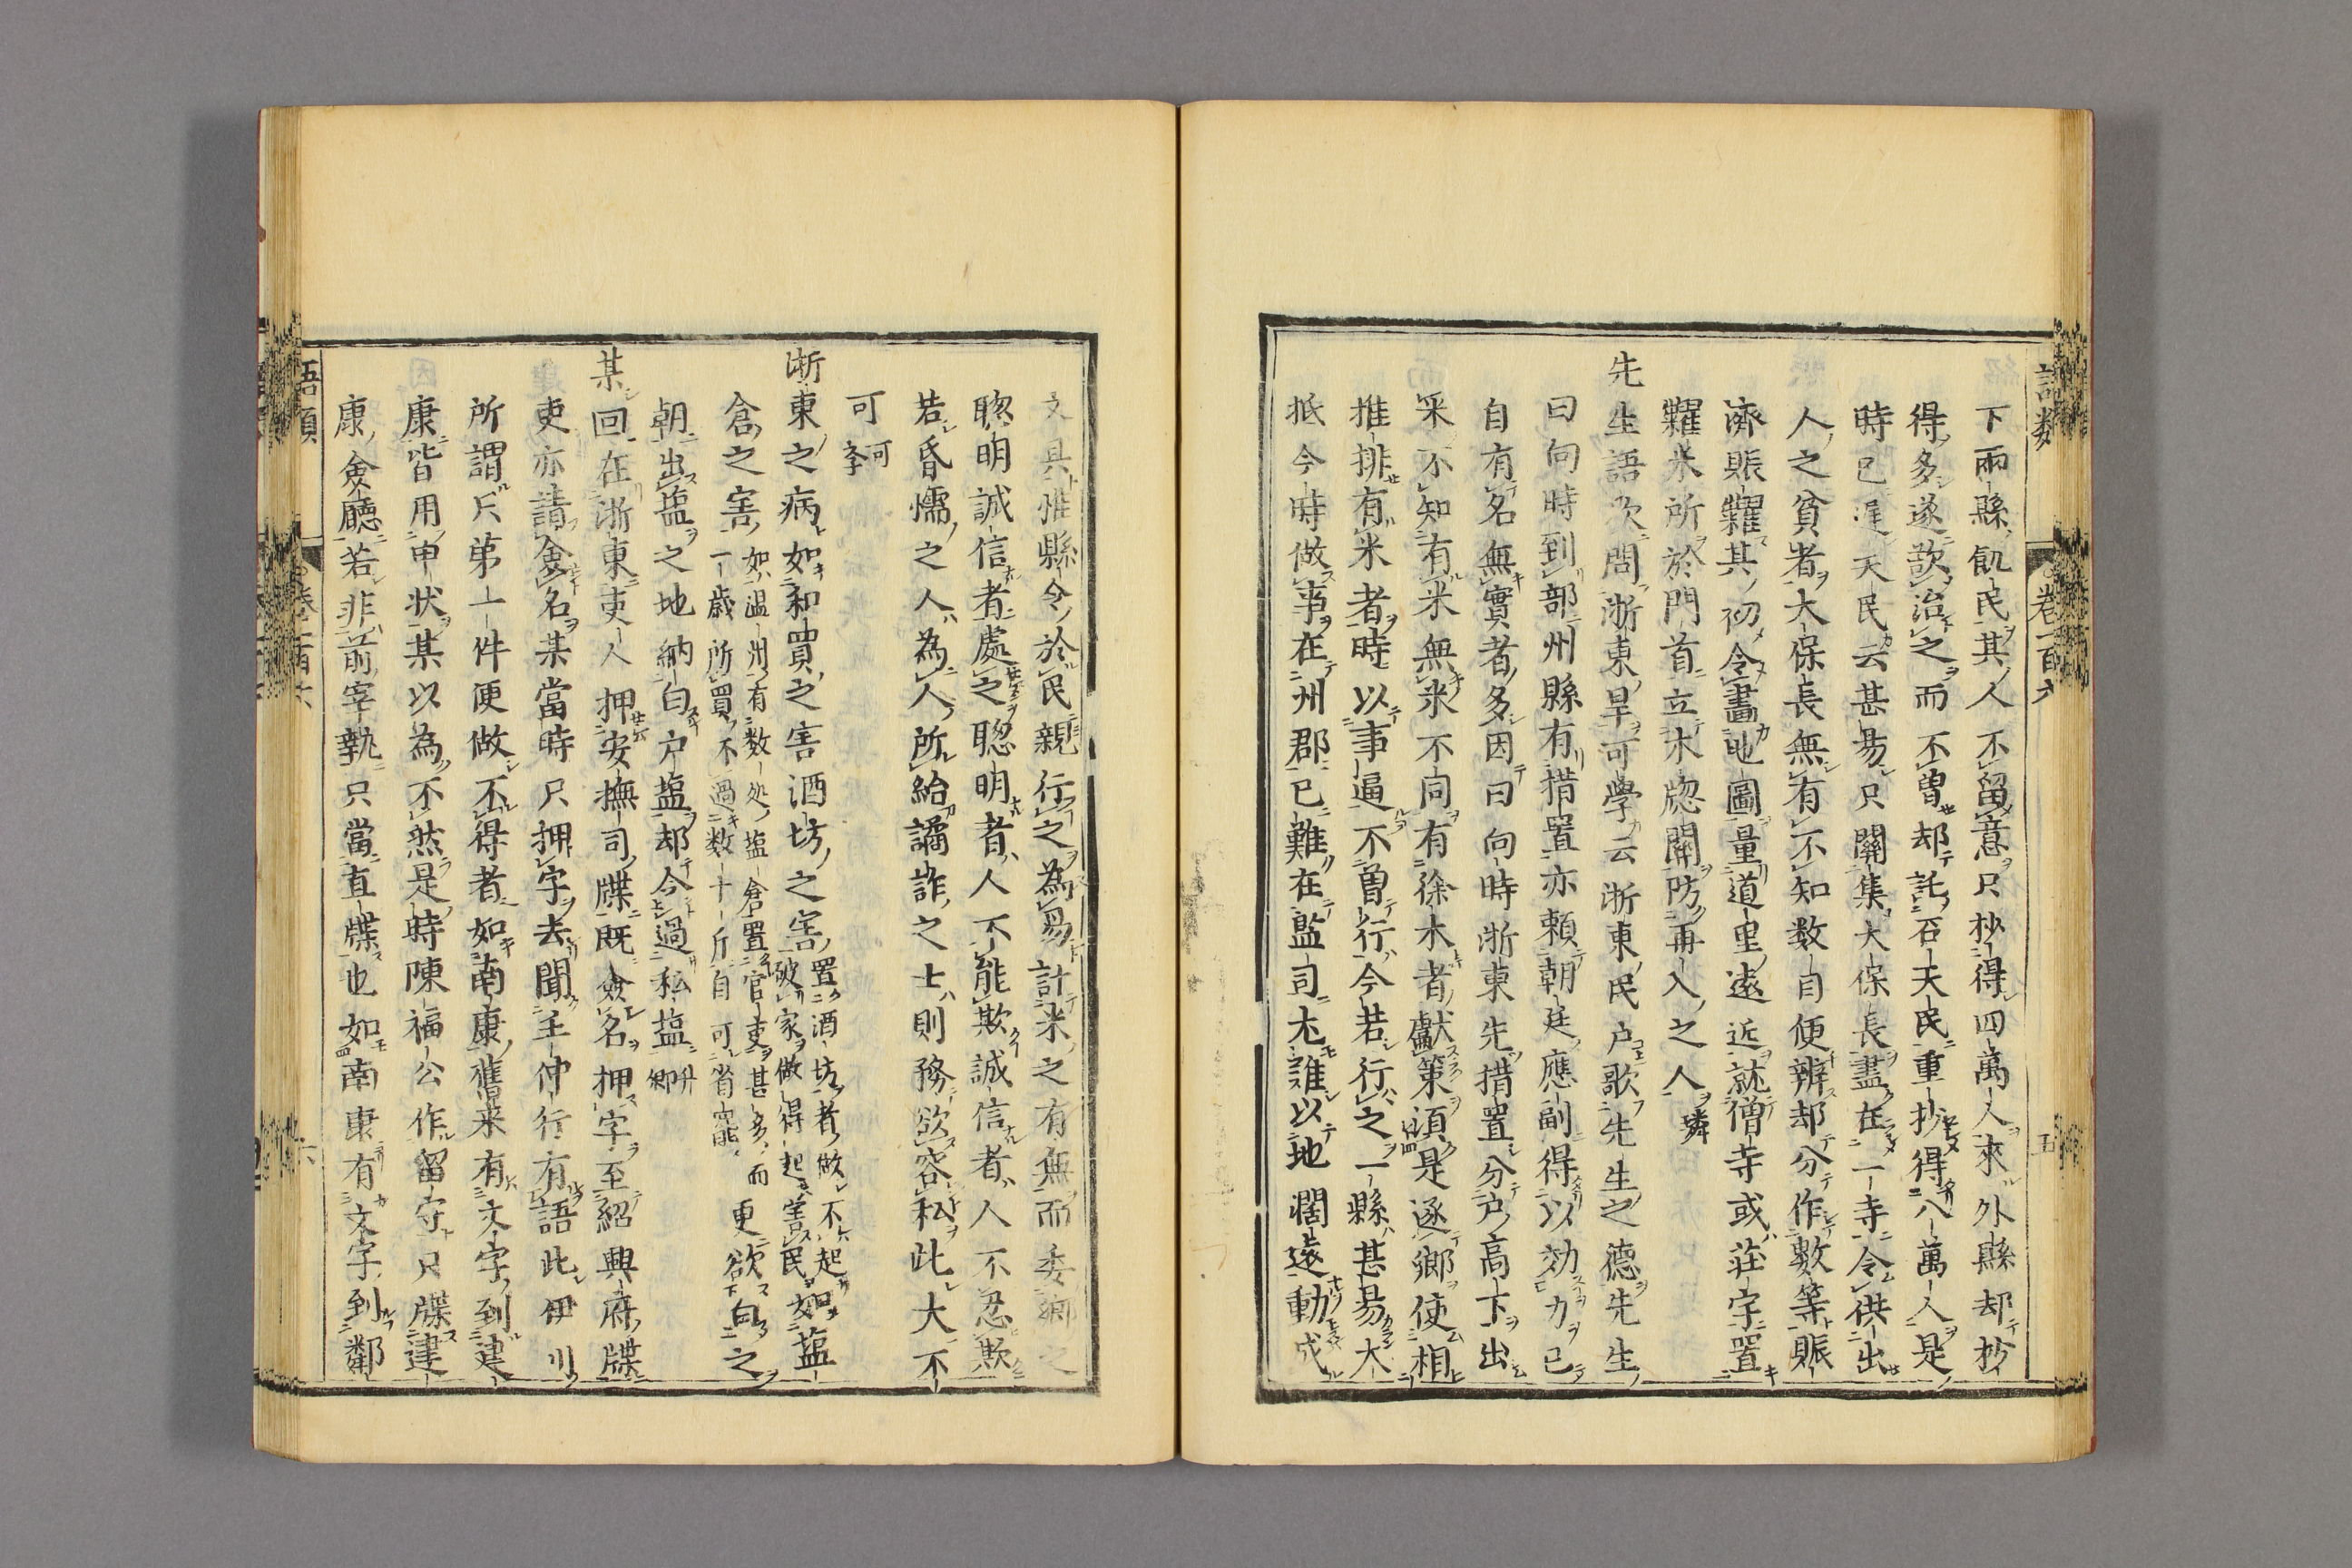 語類
卷一百六
五
下兩縣飢民其人不留意只抄得四萬人來外縣却抄
得多遂欵治之而不曽却託石天民重抄得八萬人是
時已遅天民云甚易只關集大保長盡在一寺令供出
人之貧者大保長無有不知数目便辨却分作數等賑
濟賬糶其初令畫地圖量道里遠近就僧寺或莊宇置
糶米所於門首立木牎關防再入之人 璘
先生語次問浙東旱可學云浙東民户歌先生之德先生
曰向時到部州縣有措置亦頼朝廷應副得以効力已
自有名無實者多因曰向時浙東先措置分户高下出
米不知有米無米不同有徐木者獻策須是逐鄉使相
推排有米者時以事逼不曽行今若行之一縣甚易大
抵今時做事在州郡已難在監司尤難以地闊遠動成
文具惟縣令於民親行之為易計米之有無而委鄉之
聡明誠信者處之聡明者人不能欺誠信者人不忍欺
若昏懦之人為人所給譎詐之士則務欲容私此大不
可 可李
浙東之病如和買之害酒坊之害 置酒坊者做不起破家做得起害民 如塩
倉之害 如温州有数処塩倉置官吏甚多而一歳所買不過数十斤自可省罷 更欲白之
朝出塩之地納白户塩却令過私塩 升卿
某回在浙東吏人押安撫司牒既僉名押字至紹興府牒
吏亦請僉名某當時只押字去聞王仲行有語此伊川
所謂只第一件便做不得者如南康舊来有文字到建
康皆用申状某以為不然是時陳福公作留守只牒建
康僉廳若非前宰執只當直牒也如南康有文字到鄰
語類
卷一百六
六